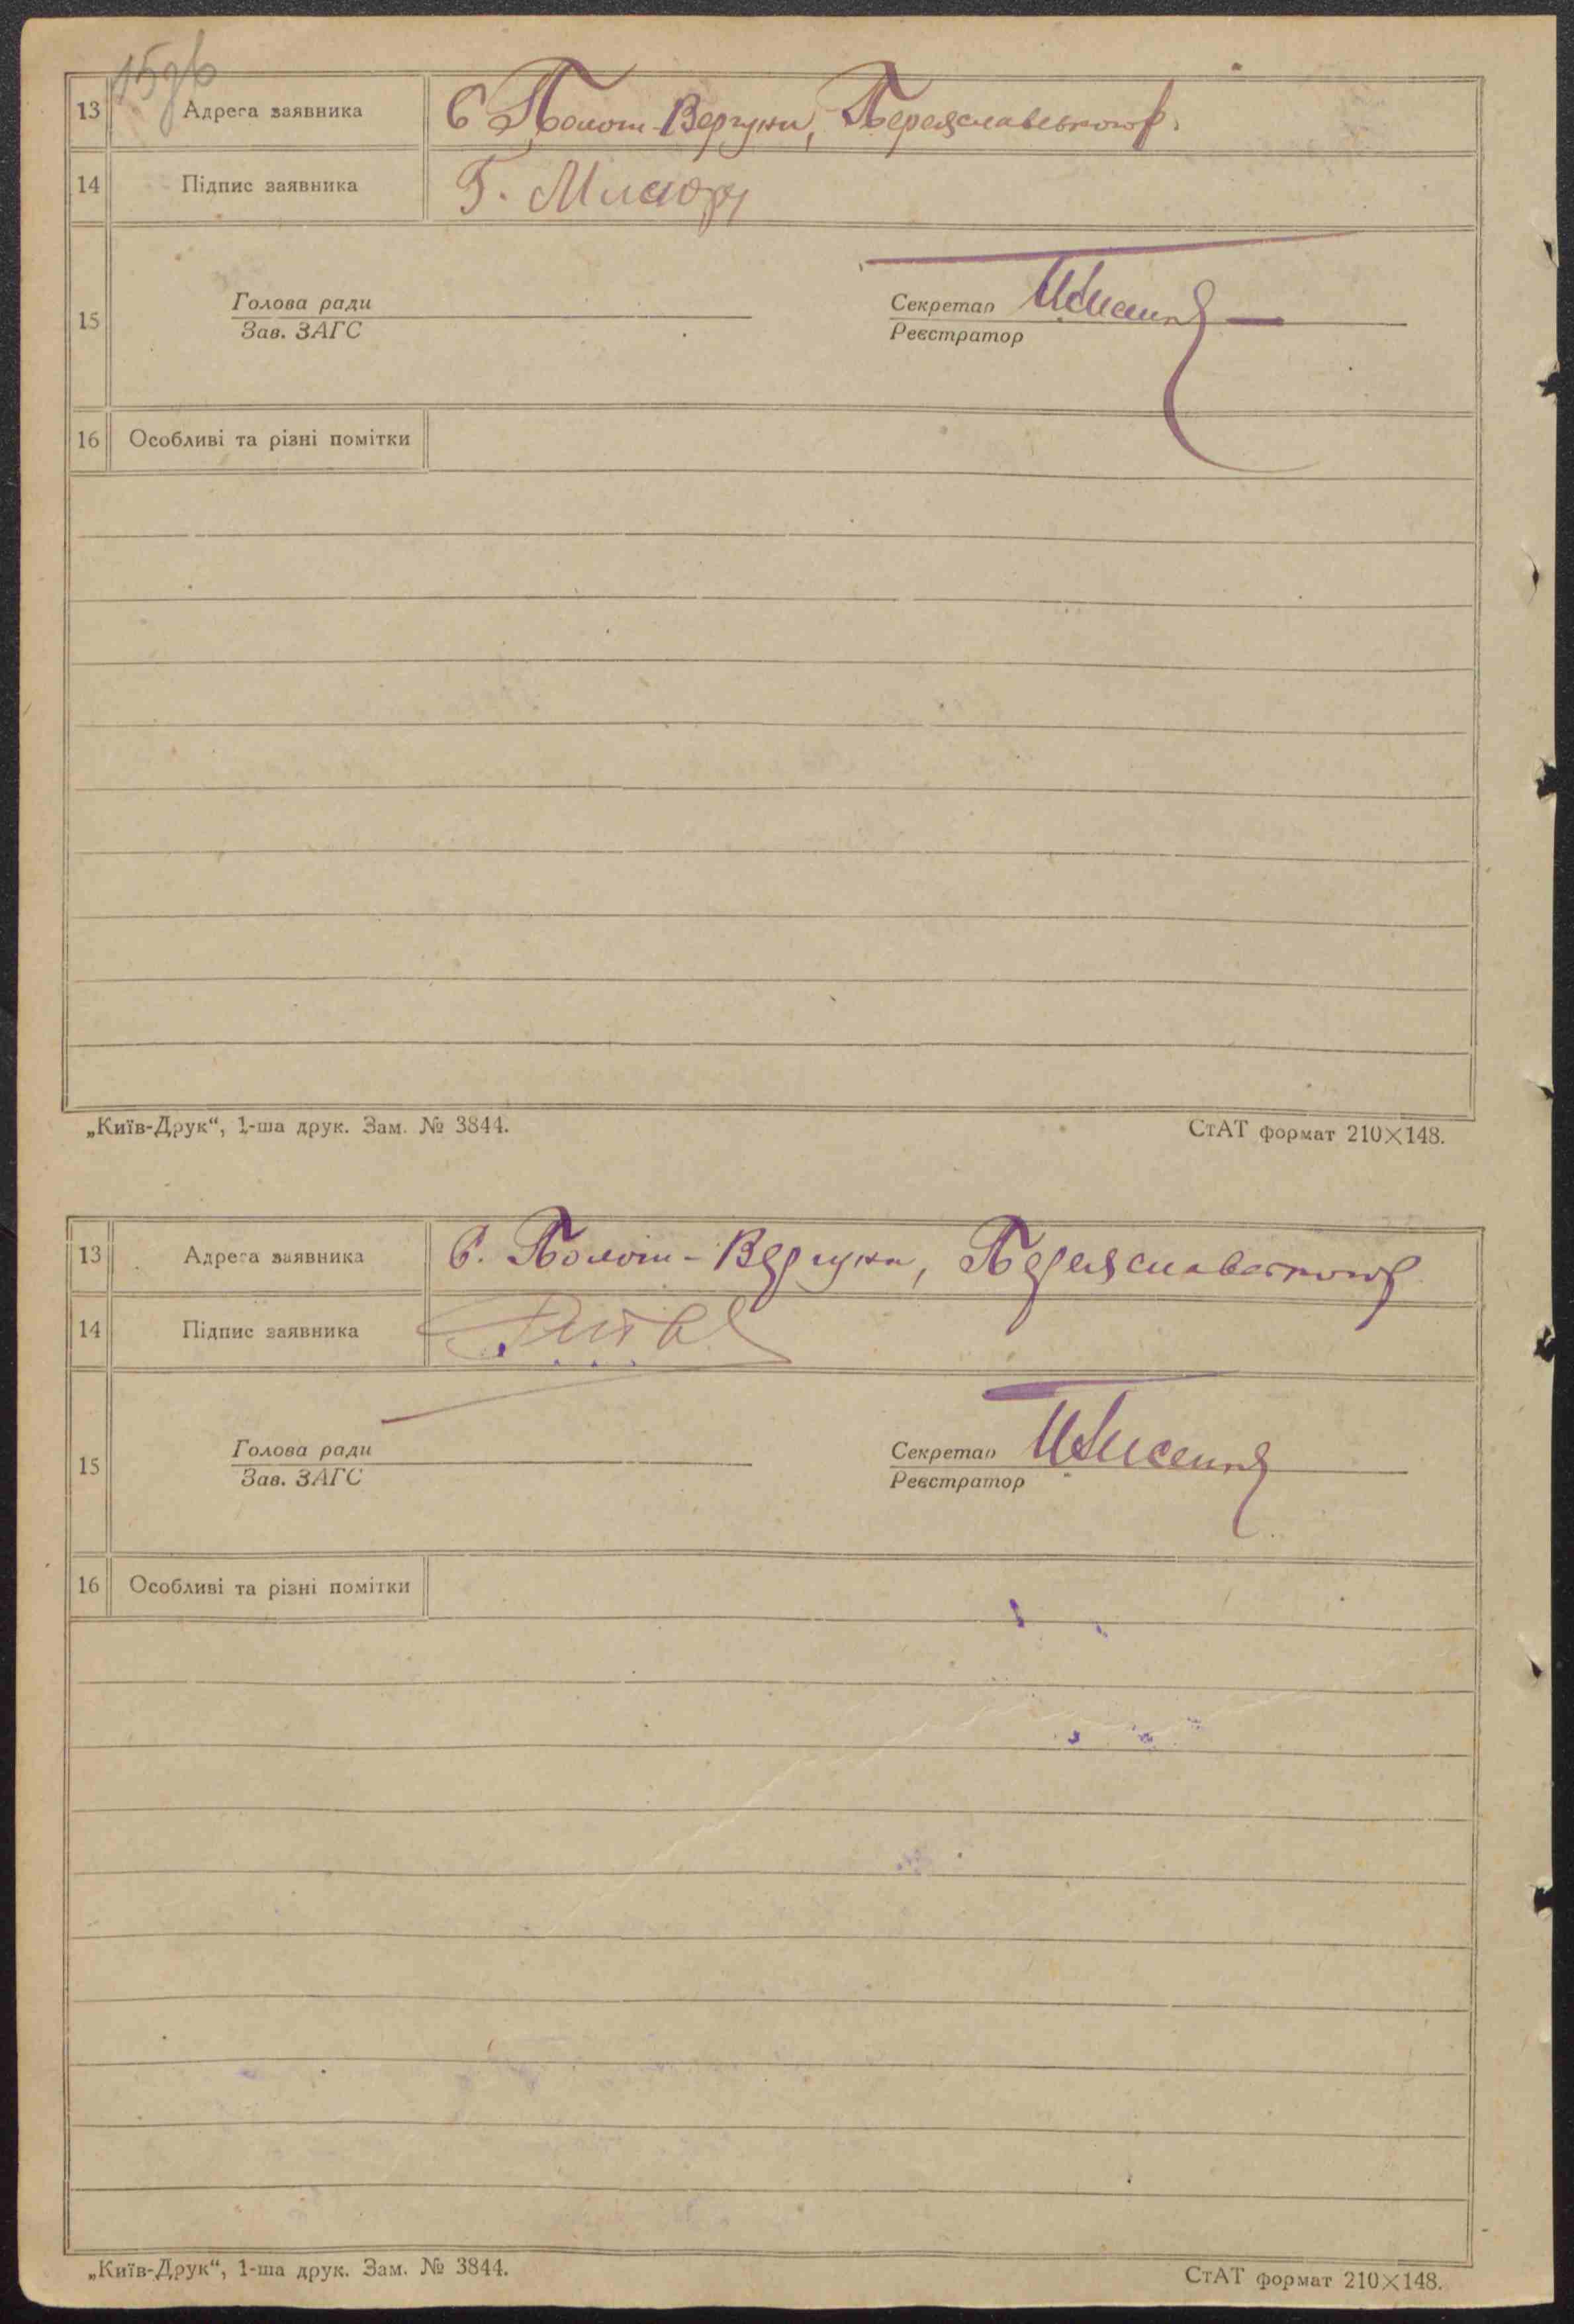 13 Адреса заявника С Полот-Вергуни, Переяславського р.
14 Підпис заявника Г.
15 Голова ради Секретар
Зав. ЗАГС Реєстратор
16 Особливі та різні помітки
„Київ-Друк“, 1-ша друк. Зам. № 3844. СтАТ формат 210×148.
13 Адреса заявника С. Полот-Вергуни, Переяславського р
14 Підпис заявника
15 Голова ради Секретар
Зав. ЗАГС Реєстратор
16 Особливі та різні помітки
„Київ-Друк“, 1-ша друк. Зам. № 3844. СтАТ формат 210×148.